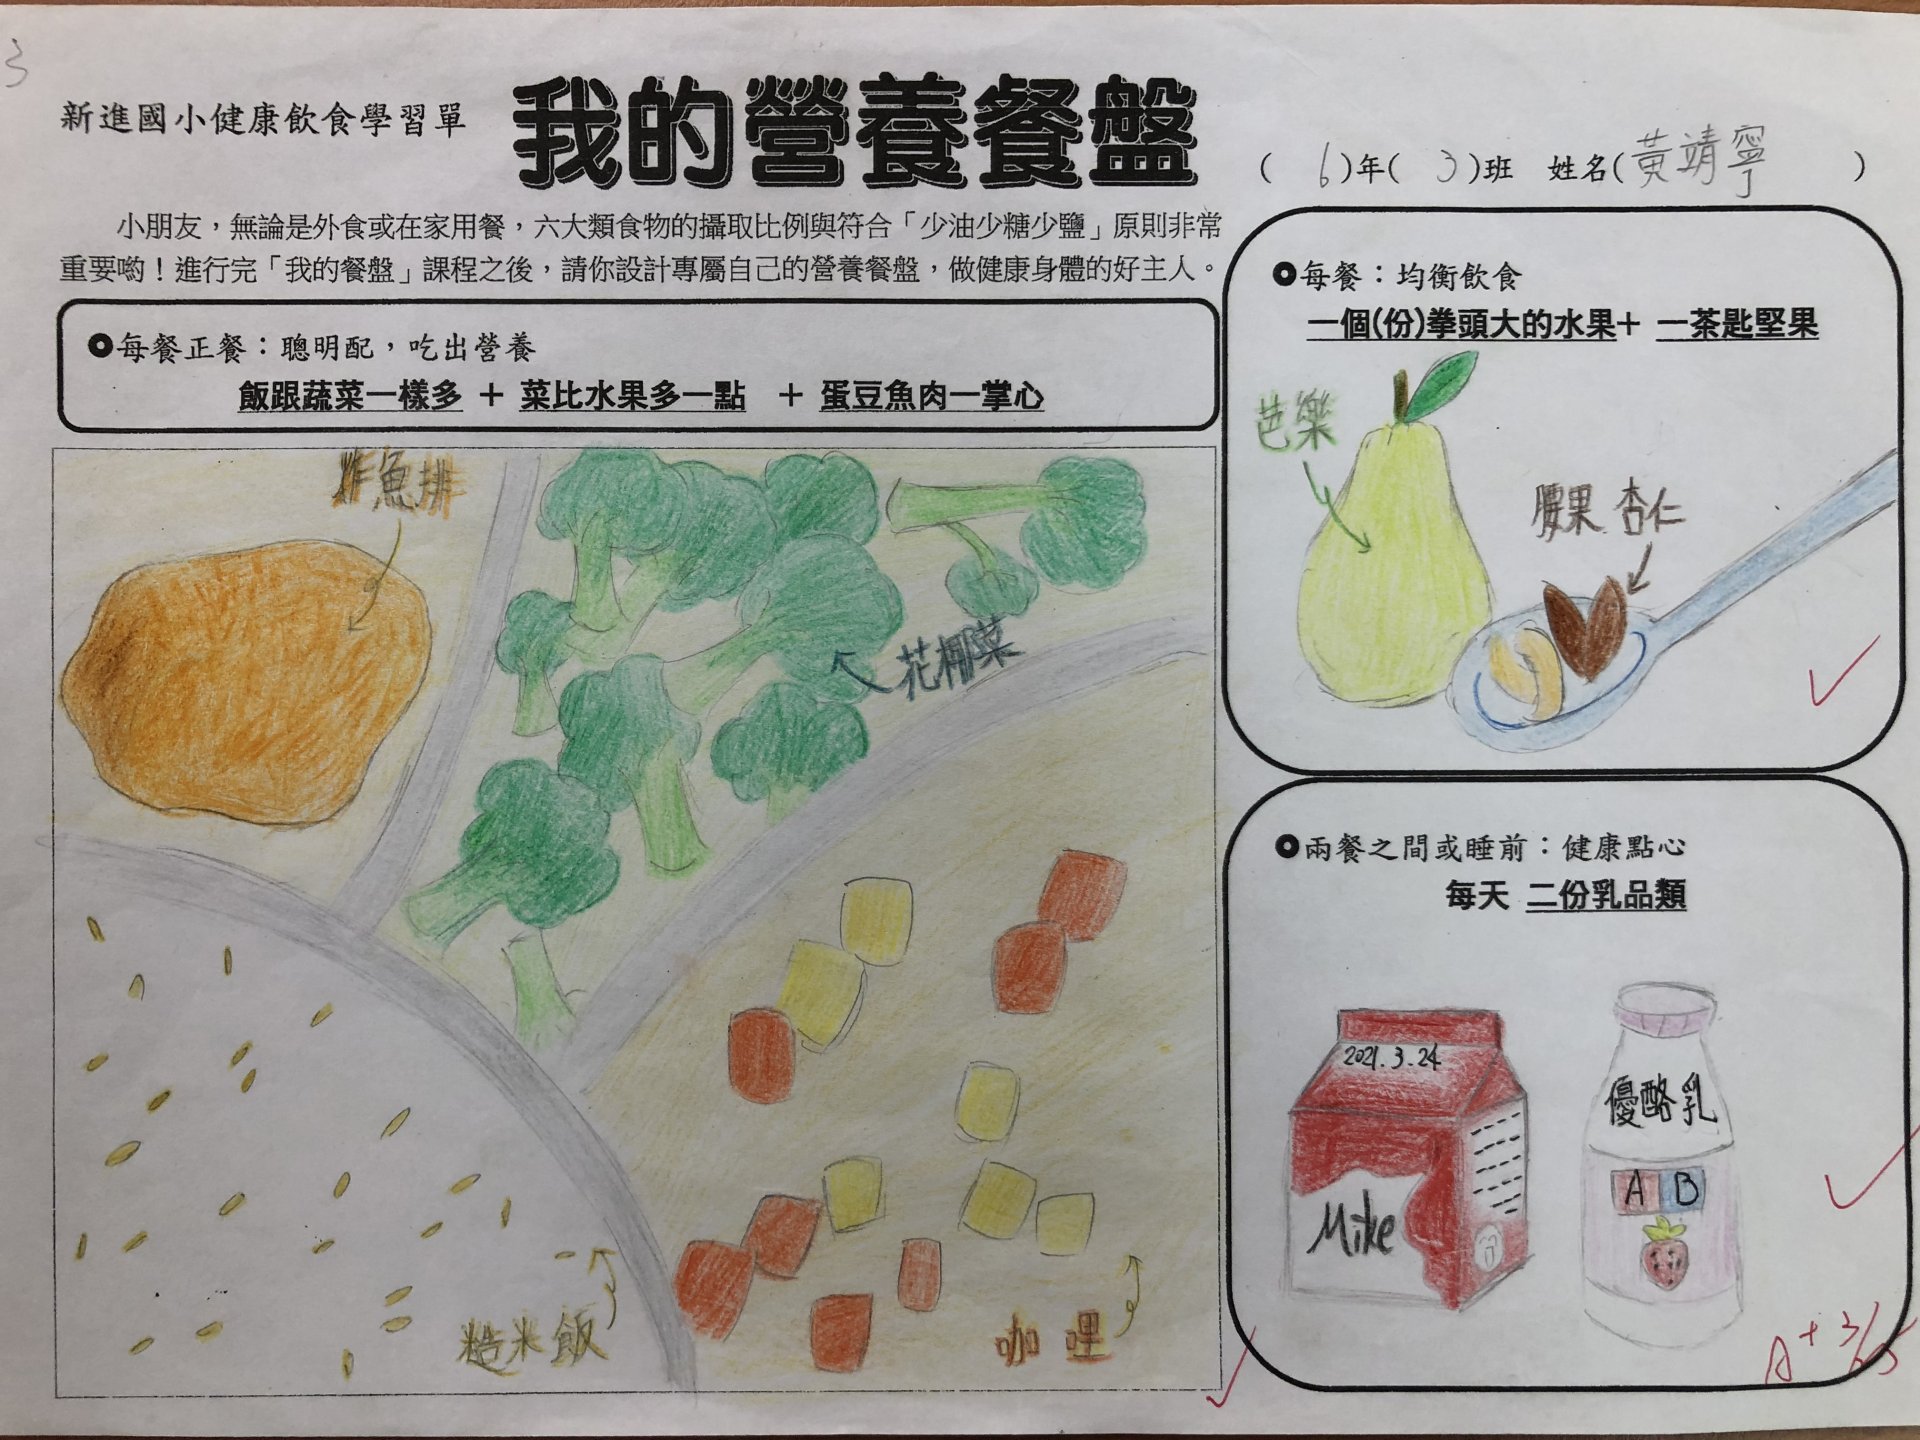 3
新進國小健康飲食學習單
我的營養餐盤
( 6 )年( 3 )班 姓名(黃靖寧 )
小朋友，無論是外食或在家用餐，六大類食物的攝取比例與符合「少油少糖少鹽」原則非常
重要喲！進行完「我的餐盤」課程之後，請你設計專屬自己的營養餐盤，做健康身體的好主人。
每餐正餐：聰明配，吃出營養
飯跟蔬菜一樣多 + 菜比水果多一點 + 蛋豆魚肉一掌心
炸魚排
花椰菜
糙米飯
咖哩
每餐：均衡飲食
一個(份)拳頭大的水果+ 一茶匙堅果
芭樂
腰果 杏仁
兩餐之間或睡前：健康點心
每天 二份乳品類
2021.3.24
Mike
優酪乳
A B
A+ 3/25